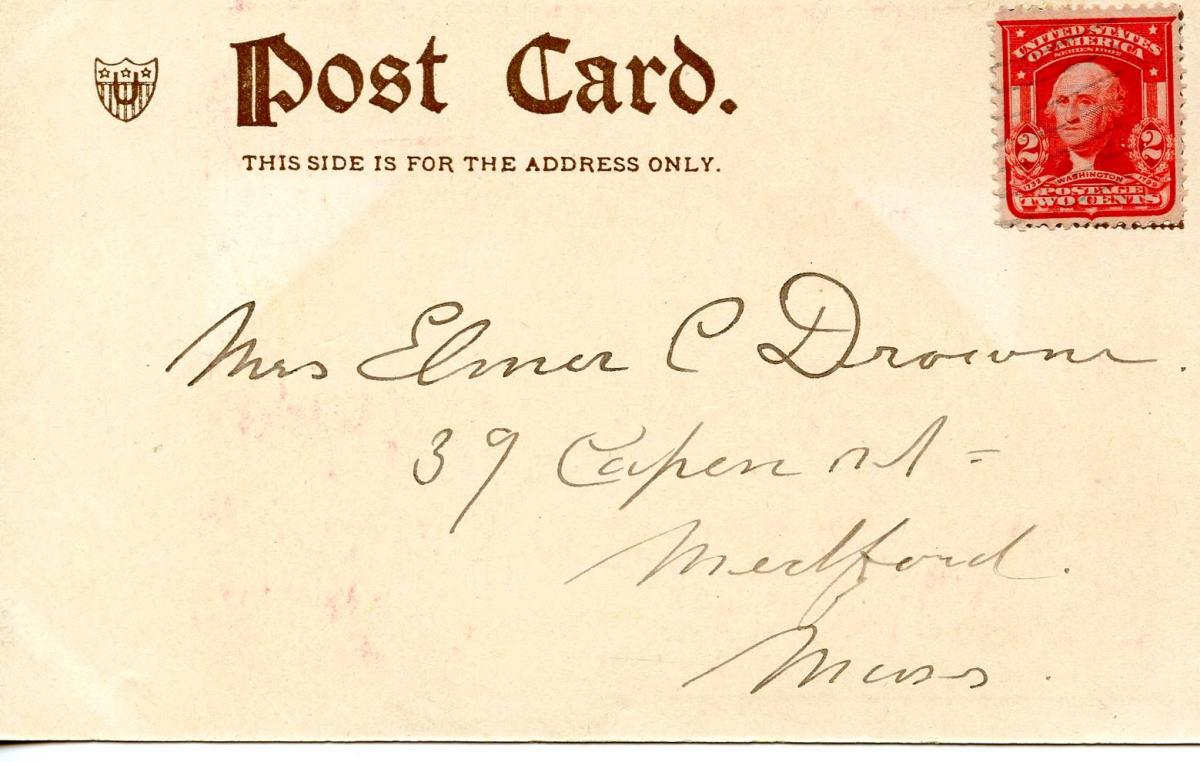 Post Card.
THIS SIDE IS FOR THE ADDRESS ONLY.
U
UNITED STATES
OF AMERICA
SERIES 1902
2 2
1732 WASHINGTON 1799
POSTAGE
TWO CENTS
Mrs Elmer C Drowne.
39 Capen St=
Medford.
Mass.